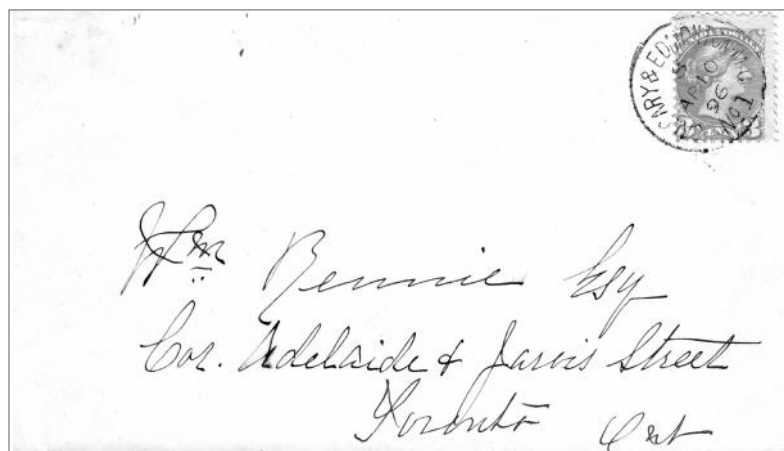 GARY & EDMONTON M.C
S
AP 10
96
No 1
Wm Rennie Esq
Cor. Adelaide & Jarvis Street
Toronto Ont